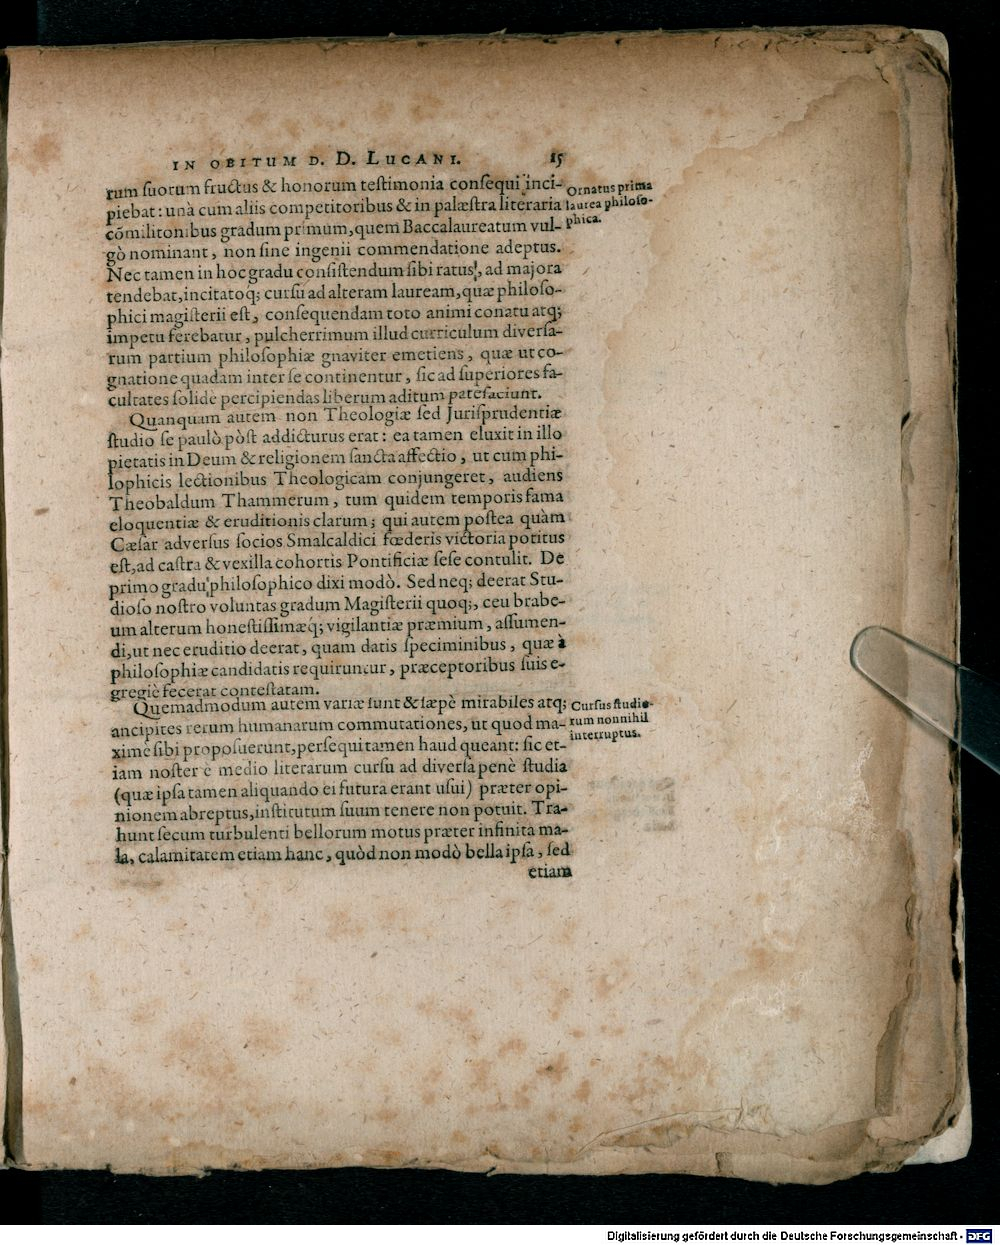 IN OBITUM D. D. LUCANI. 15
rum suorum fructus & honorum testimonia consequi inci-
piebat: unà cum aliis competitoribus & in palæstra literaria
cõmilitonibus gradum primum, quem Baccalaureatum vul-
gò nominant, non sine ingenii commendatione adeptus.
Nec tamen in hoc gradu consistendum sibi ratus, ad majora
tendebat, incitatoq; cursu ad alteram lauream, quæ philoso-
phici magisterii est, consequendam toto animi conatu atq;
impetu ferebatur, pulcherrimum illud curriculum diversa-
rum partium philosophiæ gnaviter emetiens, quæ ut co-
gnatione quadam inter se continentur, sic ad superiores fa-
cultates solide percipiendas liberum aditum patefaciunt.
Quanquam autem non Theologiæ sed Jurisprudentiæ
studio se paulò pòst addicturus erat: ea tamen eluxit in illo
pietatis in Deum & religionem sancta affectio, ut cum phi-
lophicis lectionibus Theologicam conjungeret, audiens
Theobaldum Thammerum, tum quidem temporis fama
eloquentiæ & eruditionis clarum; qui autem postea quàm
Cæsar adversus socios Smalcaldici fœderis victoria potitus
est, ad castra & vexilla cohortis Pontificiæ sese contulit. De
primo gradu philosophico dixi modò. Sed neq; deerat Stu-
dioso nostro voluntas gradum Magisterii quoq;, ceu brabe-
um alterum honestissimæq́; vigilantiæ præmium, assumen-
di, ut nec eruditio deerat, quam datis speciminibus, quæ à
philosophiæ candidatis requiruntur, præceptoribus suis e-
gregiè fecerat contestatam.
Quemadmodum autem variæ sunt & sæpè mirabiles atq;
ancipites rerum humanarum commutationes, ut quod ma-
ximè sibi proposuerunt, persequi tamen haud queant: sic et-
iam noster è medio literarum cursu ad diversa penè studia
(quæ ipsa tamen aliquando ei futura erant usui) præter opi-
nionem abreptus, institutum suum tenere non potuit. Tra-
hunt secum turbulenti bellorum motus præter infinita ma-
la, calamitatem etiam hanc, quòd non modò bella ipsa, sed
etiam
Ornatus prima
laurea philoso-
phica.
Cursus studio-
rum nonnihil
interruptus.
Digitalisierung gefördert durch die Deutsche Forschungsgemeinschaft - DFG